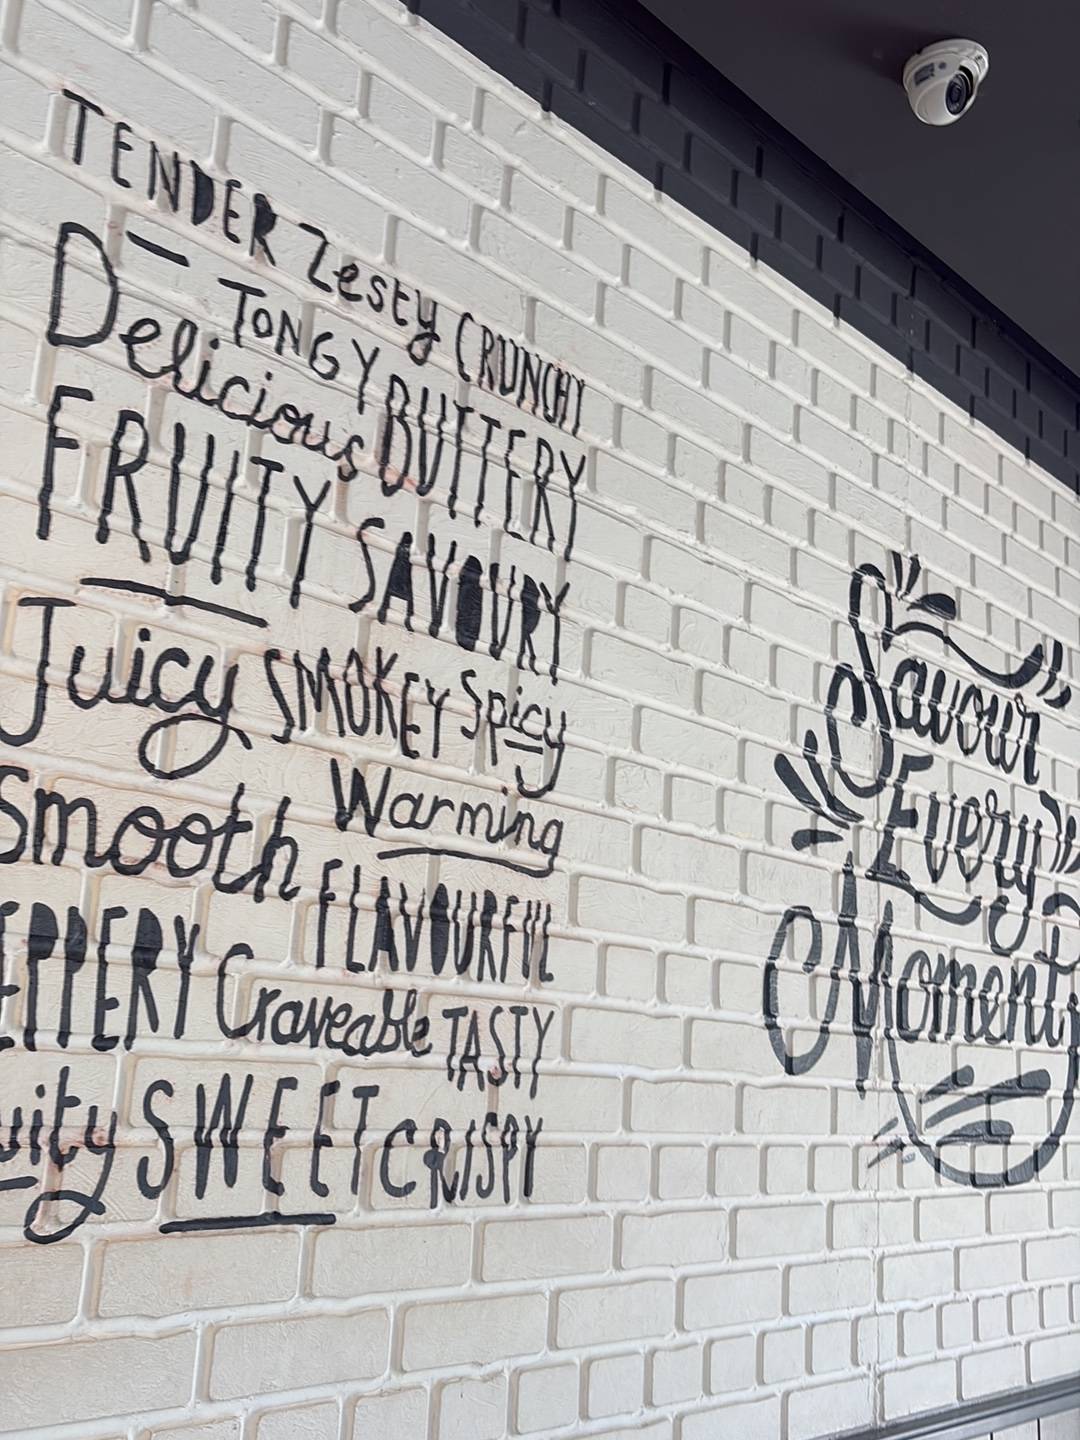 TENDER Zesty CRUNCHY
Delicious TONGY BUTTERY
FRUITY SAVOURY
Juicy SMOKEY Spicy
Smooth Warming
FLAVOURFUL
EPPERY Craveable TASTY
uity SWEET CRISPY
Savour
Every
Moment